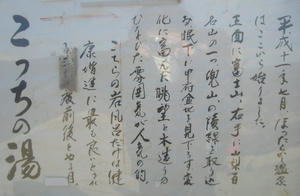 平成十一年七月 ほったらかし温泉
はここから始りました。
正面に富士山、右手に山梨百
名山の一つ兜山の陵線を取り込
み眼下に甲府盆地を見下ろす変
化に富んだ眺望と木造りの
ひなびた雰囲気が人気的。
こちらの岩風呂だけは健
康増進に最も良いとされ
度前後とぬる目
こっちの湯